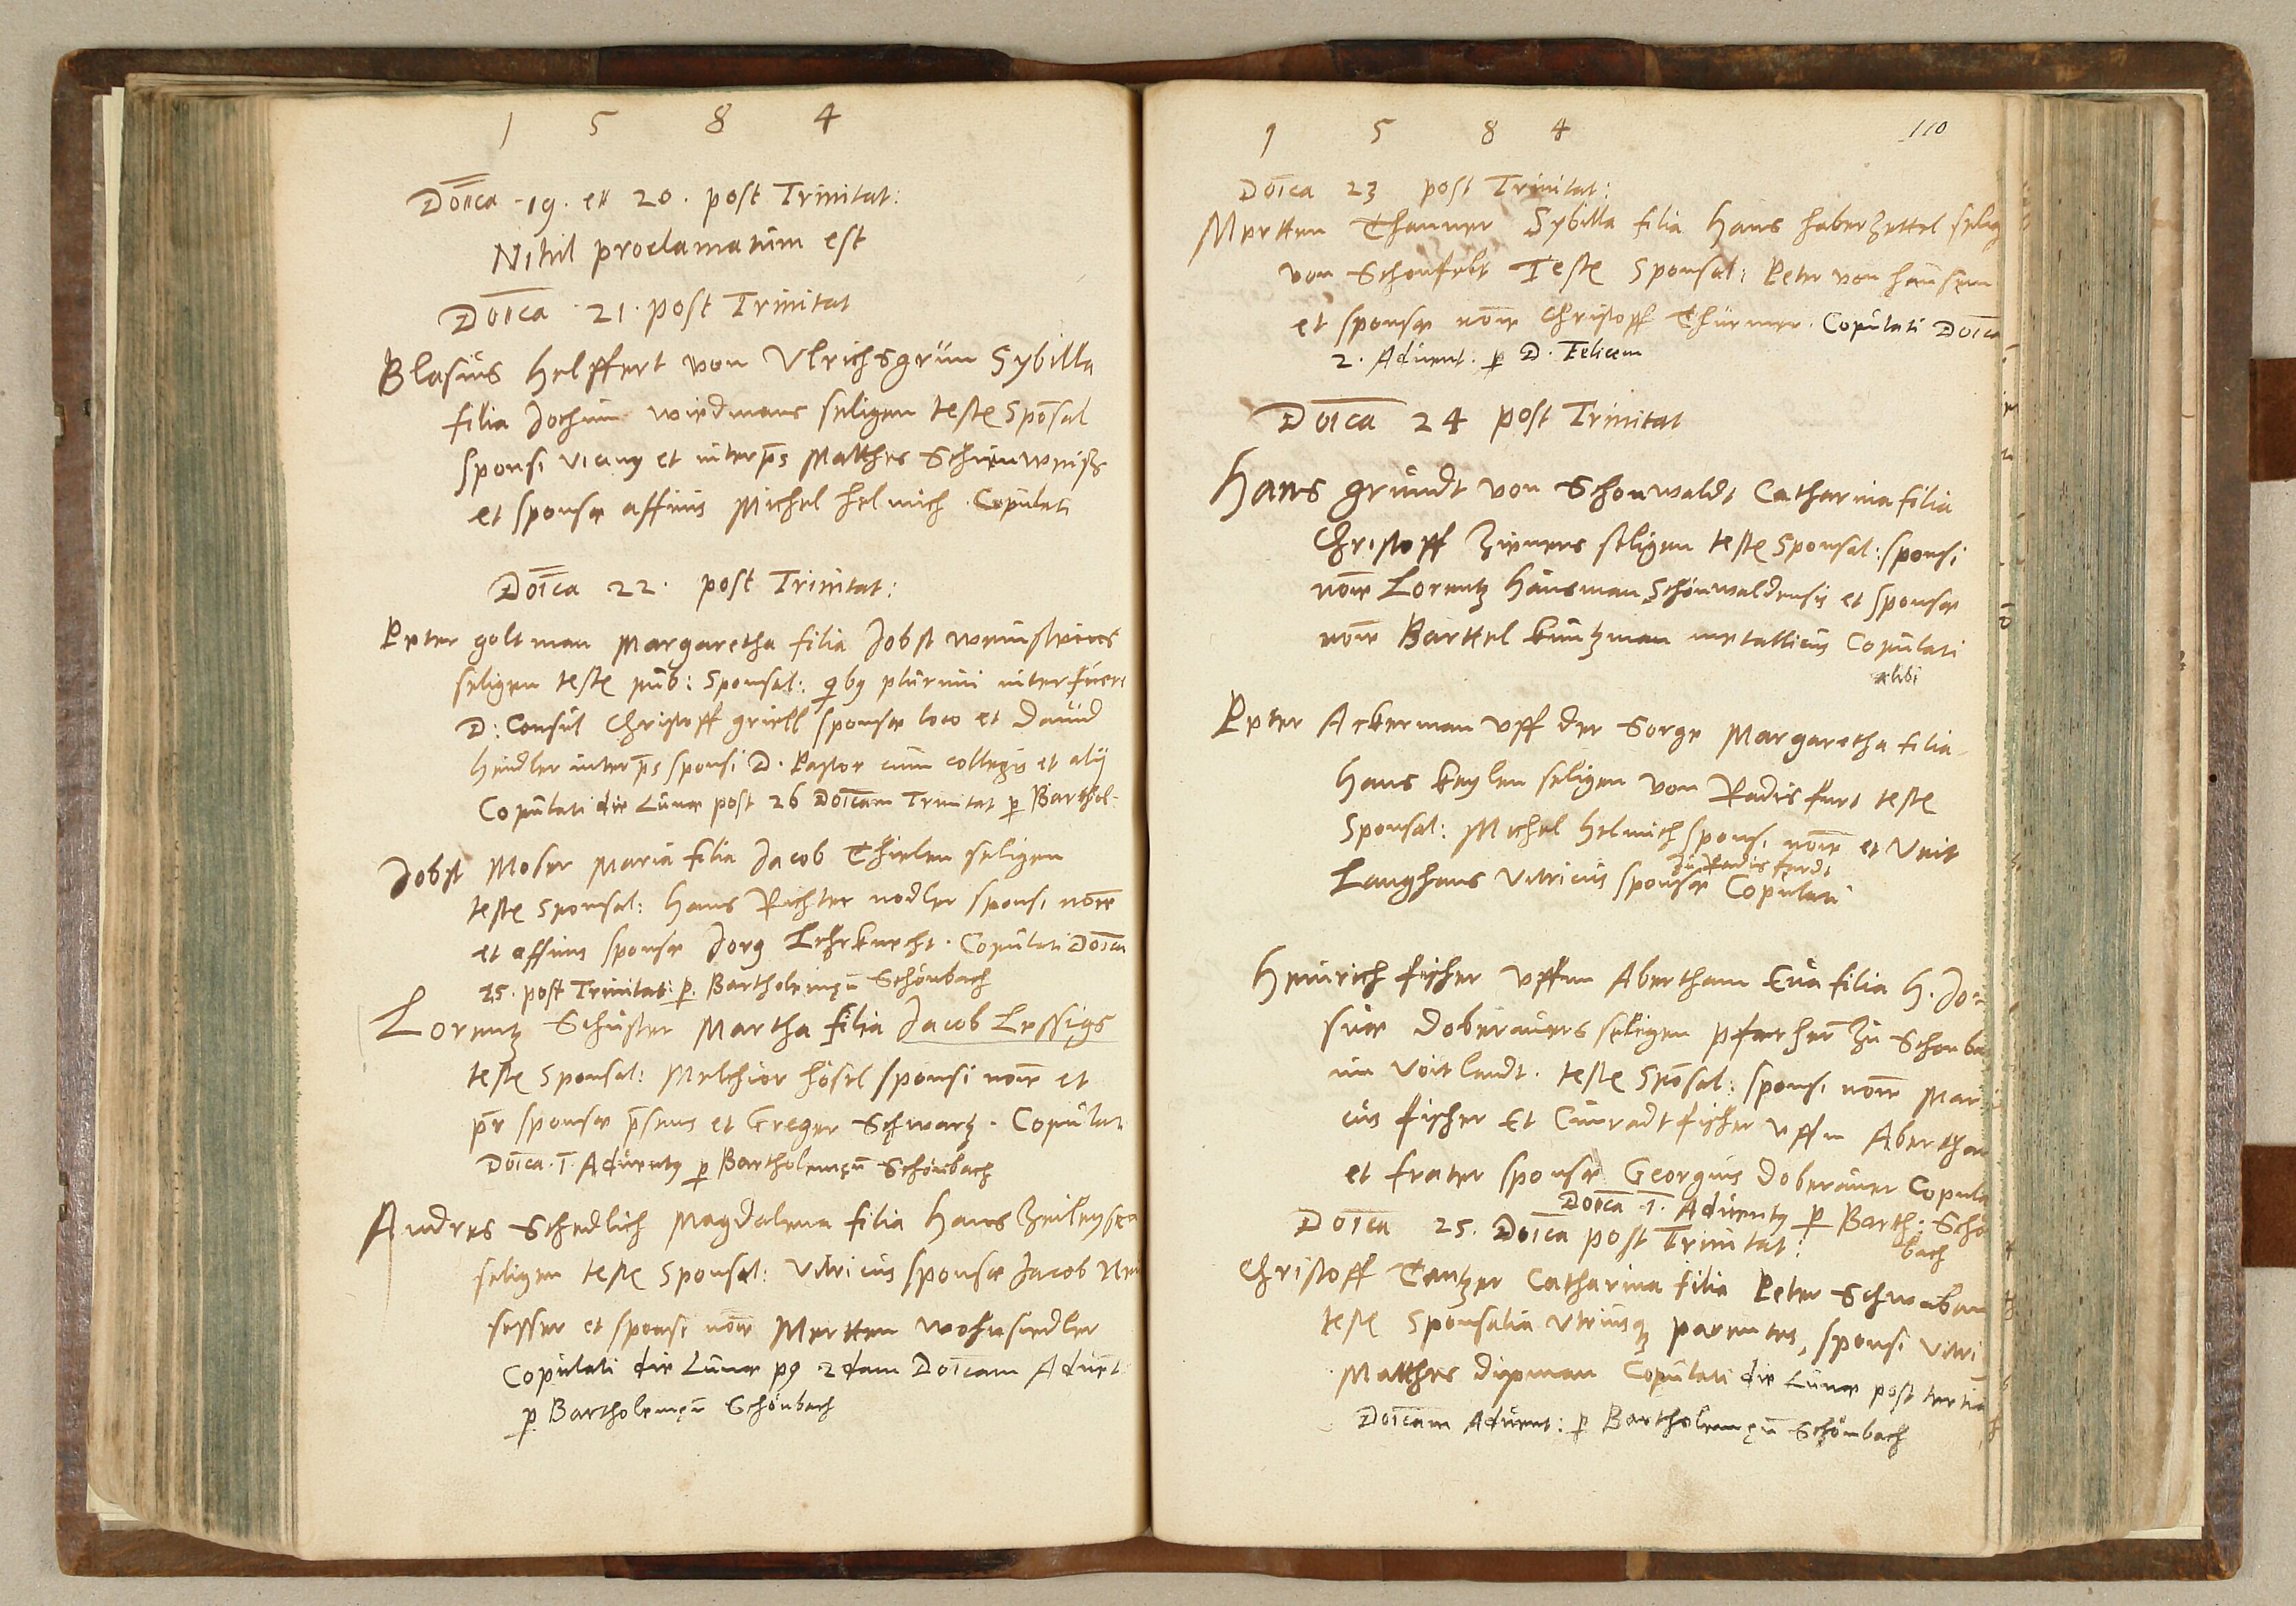 1 5 8 4
Doīca 19. et 20. post Trinitat:
Nihil proclamatum est
Doīca 21. post Trinitat
Blasius Helffert von Ulrichsgrün Sybilla
filia Jochim Wiedmans seligen teste Spōsal
sponsi vicinus et interp̄s Matthes Schirnweiss
et sponsæ affinis Michel Helmich. Copulati
Doīca 22. post Trinitat:
Peter Goltman Margaretha filia Jobst Weinsteins
seligen teste pub: Sponsal: quibus plurimi interfuere
D: Consul Christoff Griessl sponsæ loco et Dauid
Heidler interp̄s sponsi D. Pastor cum collegis et alij
Copulati die Lunæ post 26 Doīcam Trinitat p Barthol-
Jobst Moser Maria filia Jacob Thielen seligen
teste Sponsal: Hans Richter nodler sponsi noīe
et affinis sponsæ Jorg Lehrknecht. Copulati Doīca
25. post Trinitat: p. Bartholemeū Schönbach
Lorentz Schuster Martha filia Jacob Lessigs
teste Sponsal: Melchior Hösel sponsi noīe et
pr̄ sponsæ p̄sens et Greger Schwartz. Copulat
Doīca 1. Aduentus p Bartholemeū Schönbach
Andres Schedlich Magdalena filia Hans
seligen teste Sponsal: Vitricus sponsæ Jacob Neu
sesser et sponsi noīe Mertten Wohnsiedler
Copulati die Lunæ post 2dam Doīcam Aduēt
p Bartholemeū Schönbach
1 5 8 4
110
Doīca 23 post Trinitat:
Mertten Thanner Sybilla filia Hans Haberzettel selig
von Schonfelt Teste Sponsal: Peter von Hausen
et sponsæ noīe Christoff Thurmer. Copulati Doīca
2. Aduent. p D. Felicem
Doīca 24 post Trinitat
Hans Grundt von Schonwaldt Catharina filia
Christoff Zieners seligen teste Sponsal: sponsi
noīe Lorentz Hausman Schönwaldensis et sponsæ
noīe Barttel Kuntzman metallicus Copulati
alibi
Peter Ackerman uff der Sorge Margaretha filia
Hans Keylen seligen von Radisfurt teste
Sponsal: Michel Helmich sponsi noīe et Veit
zu Radisfurdt
Langhans Vitricus sponsæ Copulati
Heinrich Fischer uffm Abertham Eua filia H. Jo-
suæ Doberauers seligen pfarher zu Schonba
im Voitlandt. teste Spōsal: sponsi noīe Mar
cus Fischer et Cunradt Fischer uffm Abertham
et frater sponsæ Georgius Doberauer Copula
Doīca 1. Aduentus p Barth: Schö
bach
Doīca 25. Doīca post Trinitat:
Christoff Tentzer Catharina filia Peter Schwaben
teste Sponsalia utriusque parentes, sponsi vitri
Matthes Dipman Copulati die Lunæ post tertia
Doīcam Aduent: p Bartholemeū Schönbach